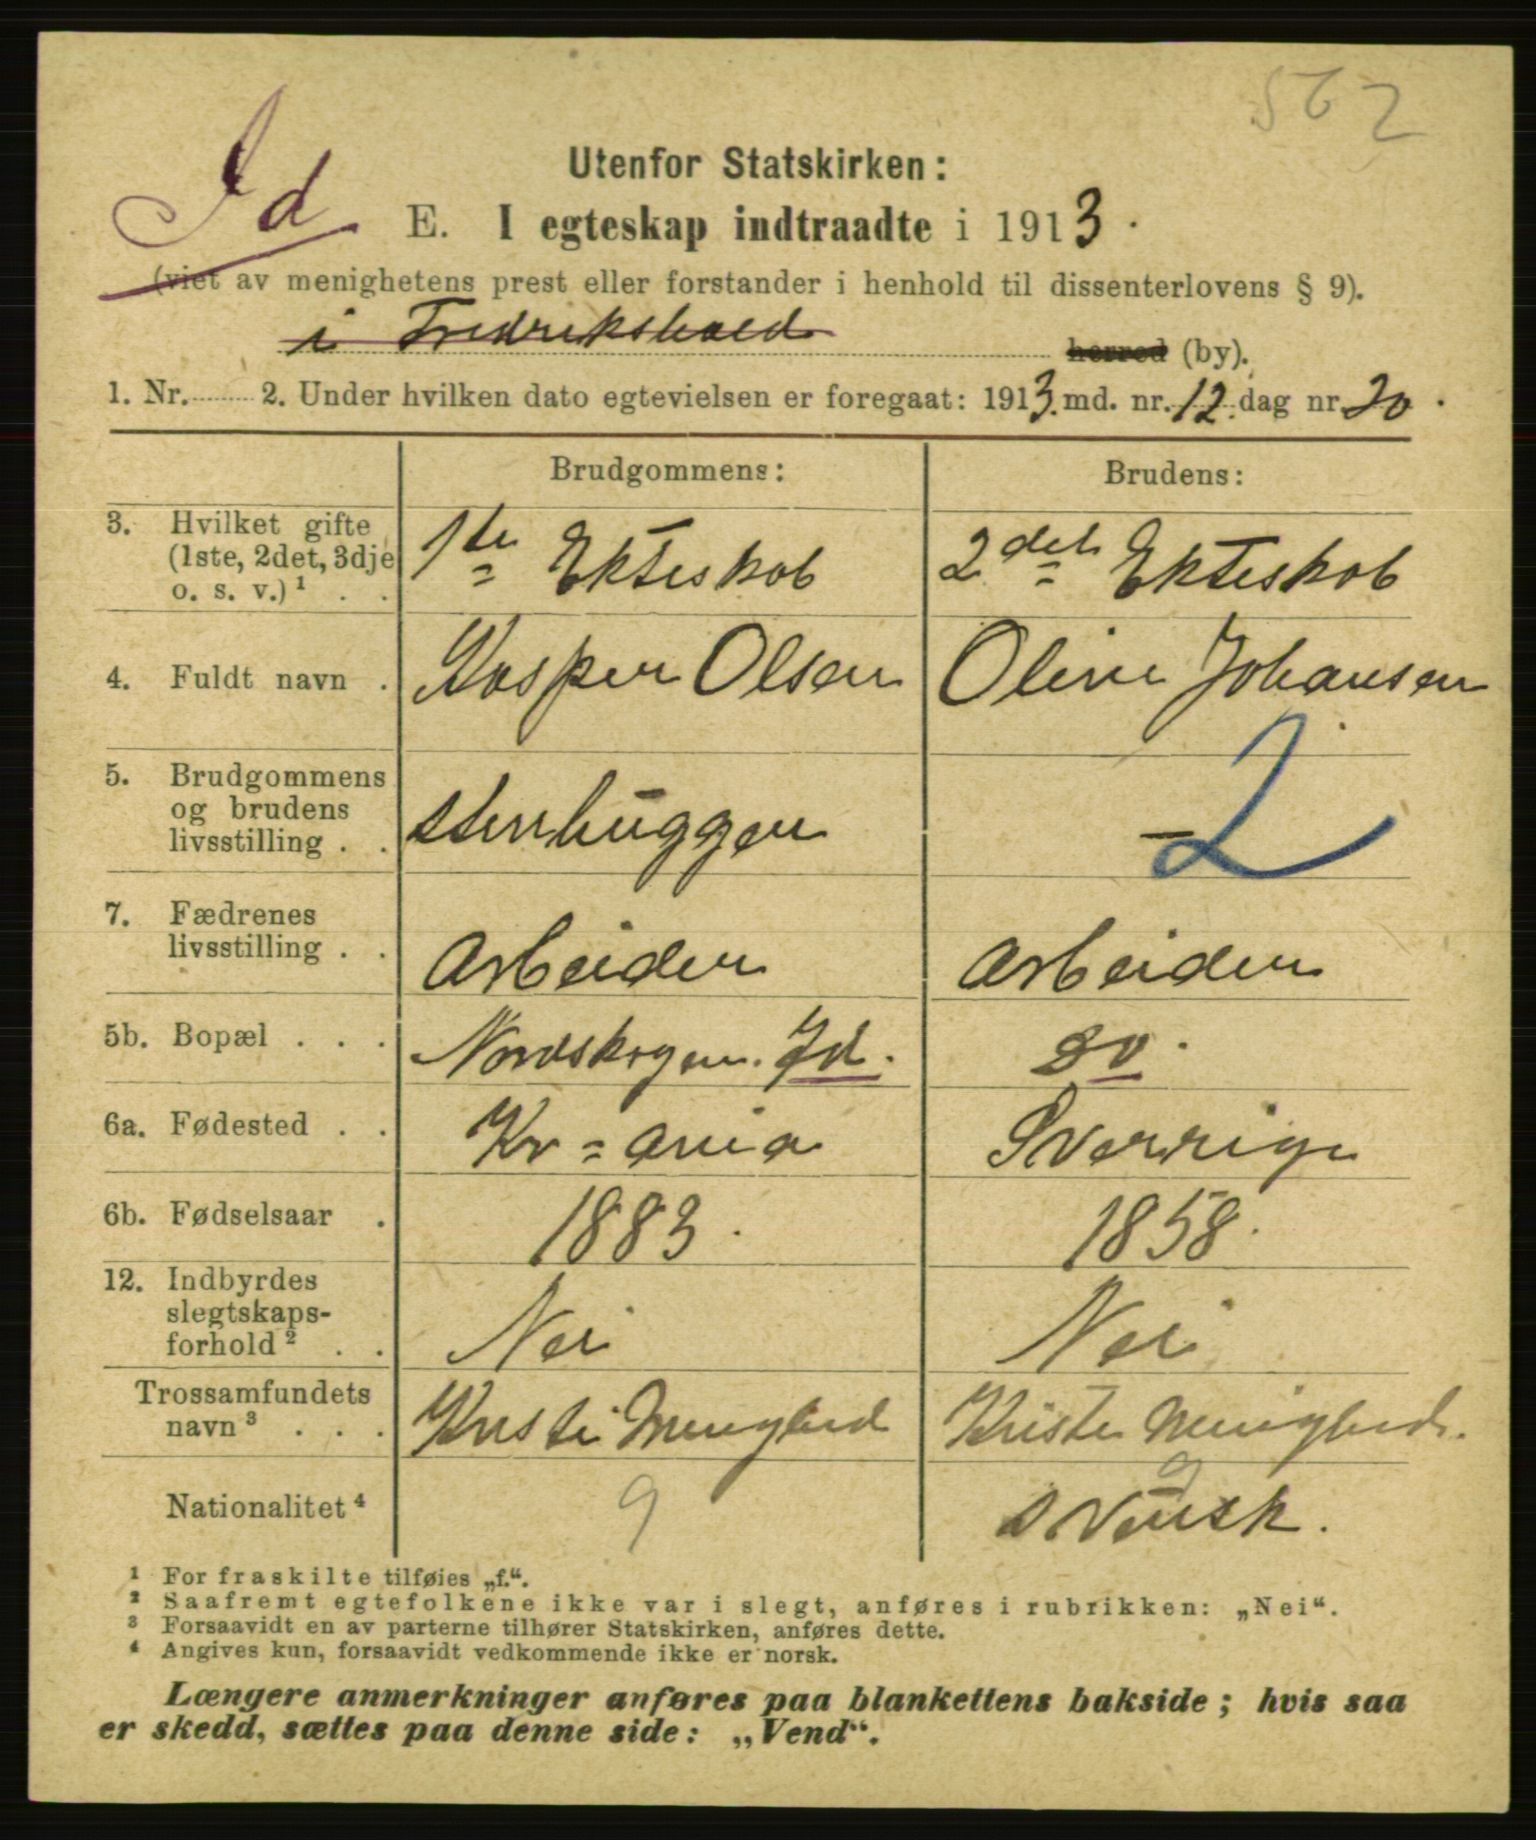 562
Id
Utenfor Statskirken:
E. I egteskap indtraadte i 1913.
(viet av menighetens prest eller forstander i henhold til dissenterlovens § 9).
i Fredrikshald herred (by).
1. Nr. 2. Under hvilken dato egtevielsen er foregaat: 1913. md. nr. 12. dag nr. 20.
Brudgommens: Brudens:
3. Hvilket gifte (1ste, 2det, 3dje o. s. v.)¹ . . 1te Ekteskab 2det Ekteskab
4. Fuldt navn . Kasper Olsen Oline Johansen
5. Brudgommens og brudens livsstilling . . stenhugger — 2
7. Fædrenes livsstilling . . Arbeider Arbeider
5b. Bopæl . . . Nordskogen. Id. do.
6a. Fødested . . Kr=ania Sverrige
6b. Fødselsaar . 1883. 1858.
12. Indbyrdes slegtskaps- forhold² . . Nei Nei
Trossamfundets navn³ . . . Kristi Menighed Kristi Menighed.
9
Nationalitet⁴ 9 svensk.
¹ For fraskilte tilføies „f.“.
² Saafremt egtefolkene ikke var i slegt, anføres i rubrikken: „Nei“.
³ Forsaavidt en av parterne tilhører Statskirken, anføres dette.
⁴ Angives kun, forsaavidt vedkommende ikke er norsk.
Længere anmerkninger anføres paa blankettens bakside; hvis saa
er skedd, sættes paa denne side: „Vend“.